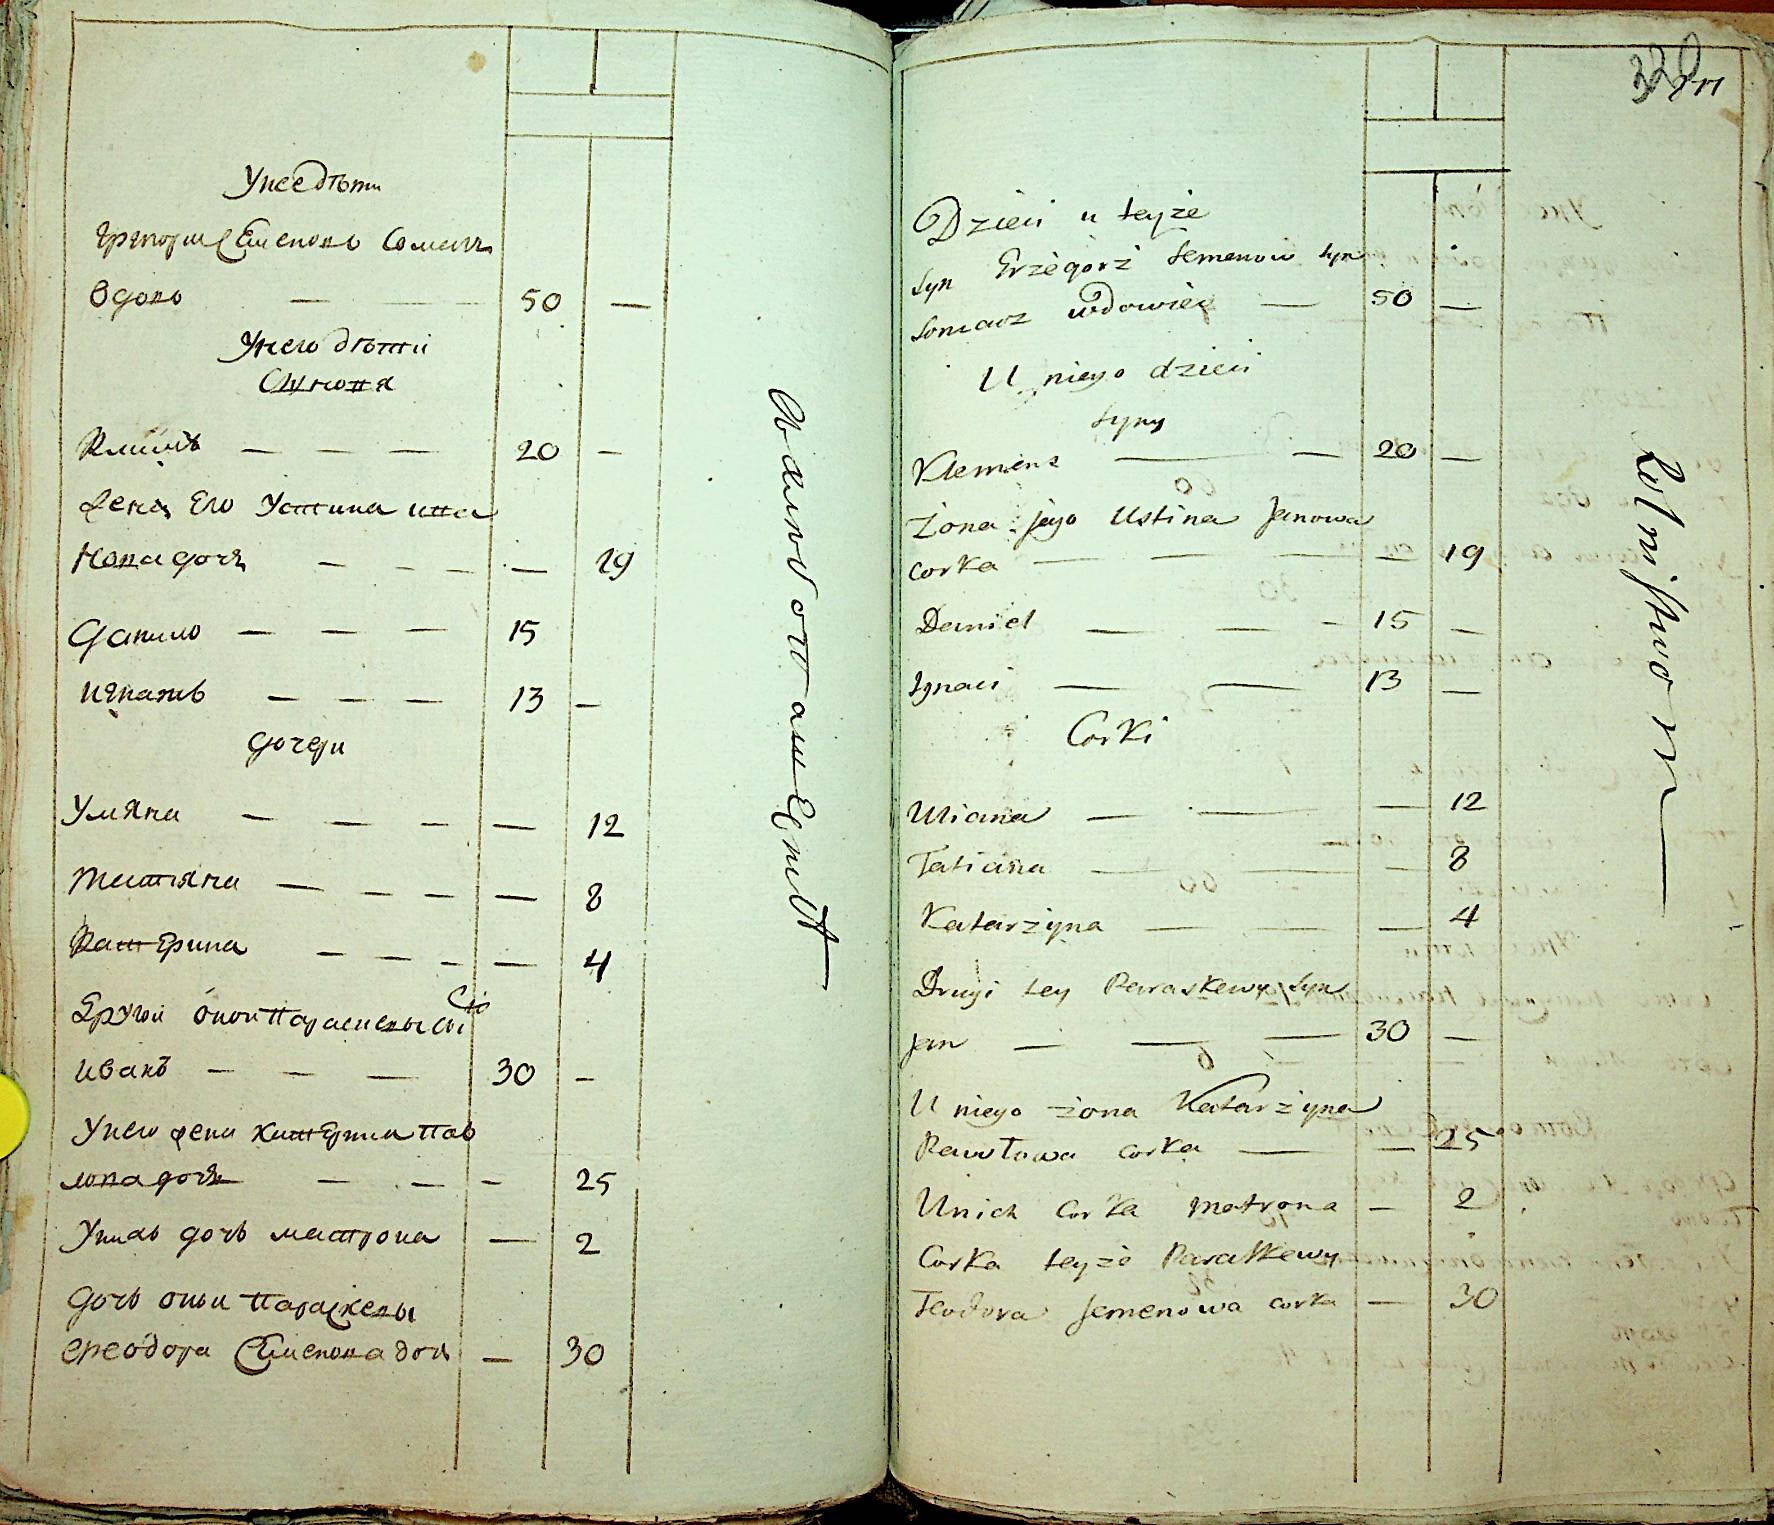 Унее дѣти
Григорие Семеновъ Сомачъ
вдовъ — — — 50 —
Унего дѣтти
Сыновя
Климъ — — — 20 —
жена Его Устина ива
нова дочь — — — — 19
Данило — — — 15
игнатъ — — — 13 —
дочери
Уляна — — — — 12
татяна — — — — — 8
Катерина — — — — 4
другий оной Параскевы сынъ
иванъ — — — 30 —
Унего жена катерина пав
лова дочь — — — 25
Унихъ дочь матрона — 2
дочь оной Параскевы
феодора Семенова дочь — 30
Dzieci u teyże
syn Grzegorz Semenow syn
Somacz wdowiec — 50 —
U niego dzieci
syny
Klemens — — 20 —
żona jego Ustina Janowa
corka — — — — 19
Daniel — — — 15 —
Ignaci — — 13 —
Corki
Uliana — — — 12
Tatiana — — — 8
Katarzyna — — — 4
Drugi tey Paraskewy syn
Jan — — — 30 —
U niego żona Katarzyna
Pawłowa corka — — 25
Unich Corka Matrona — 2
Corka teyże Paraskewy
Teodora Semenowa corka — 30